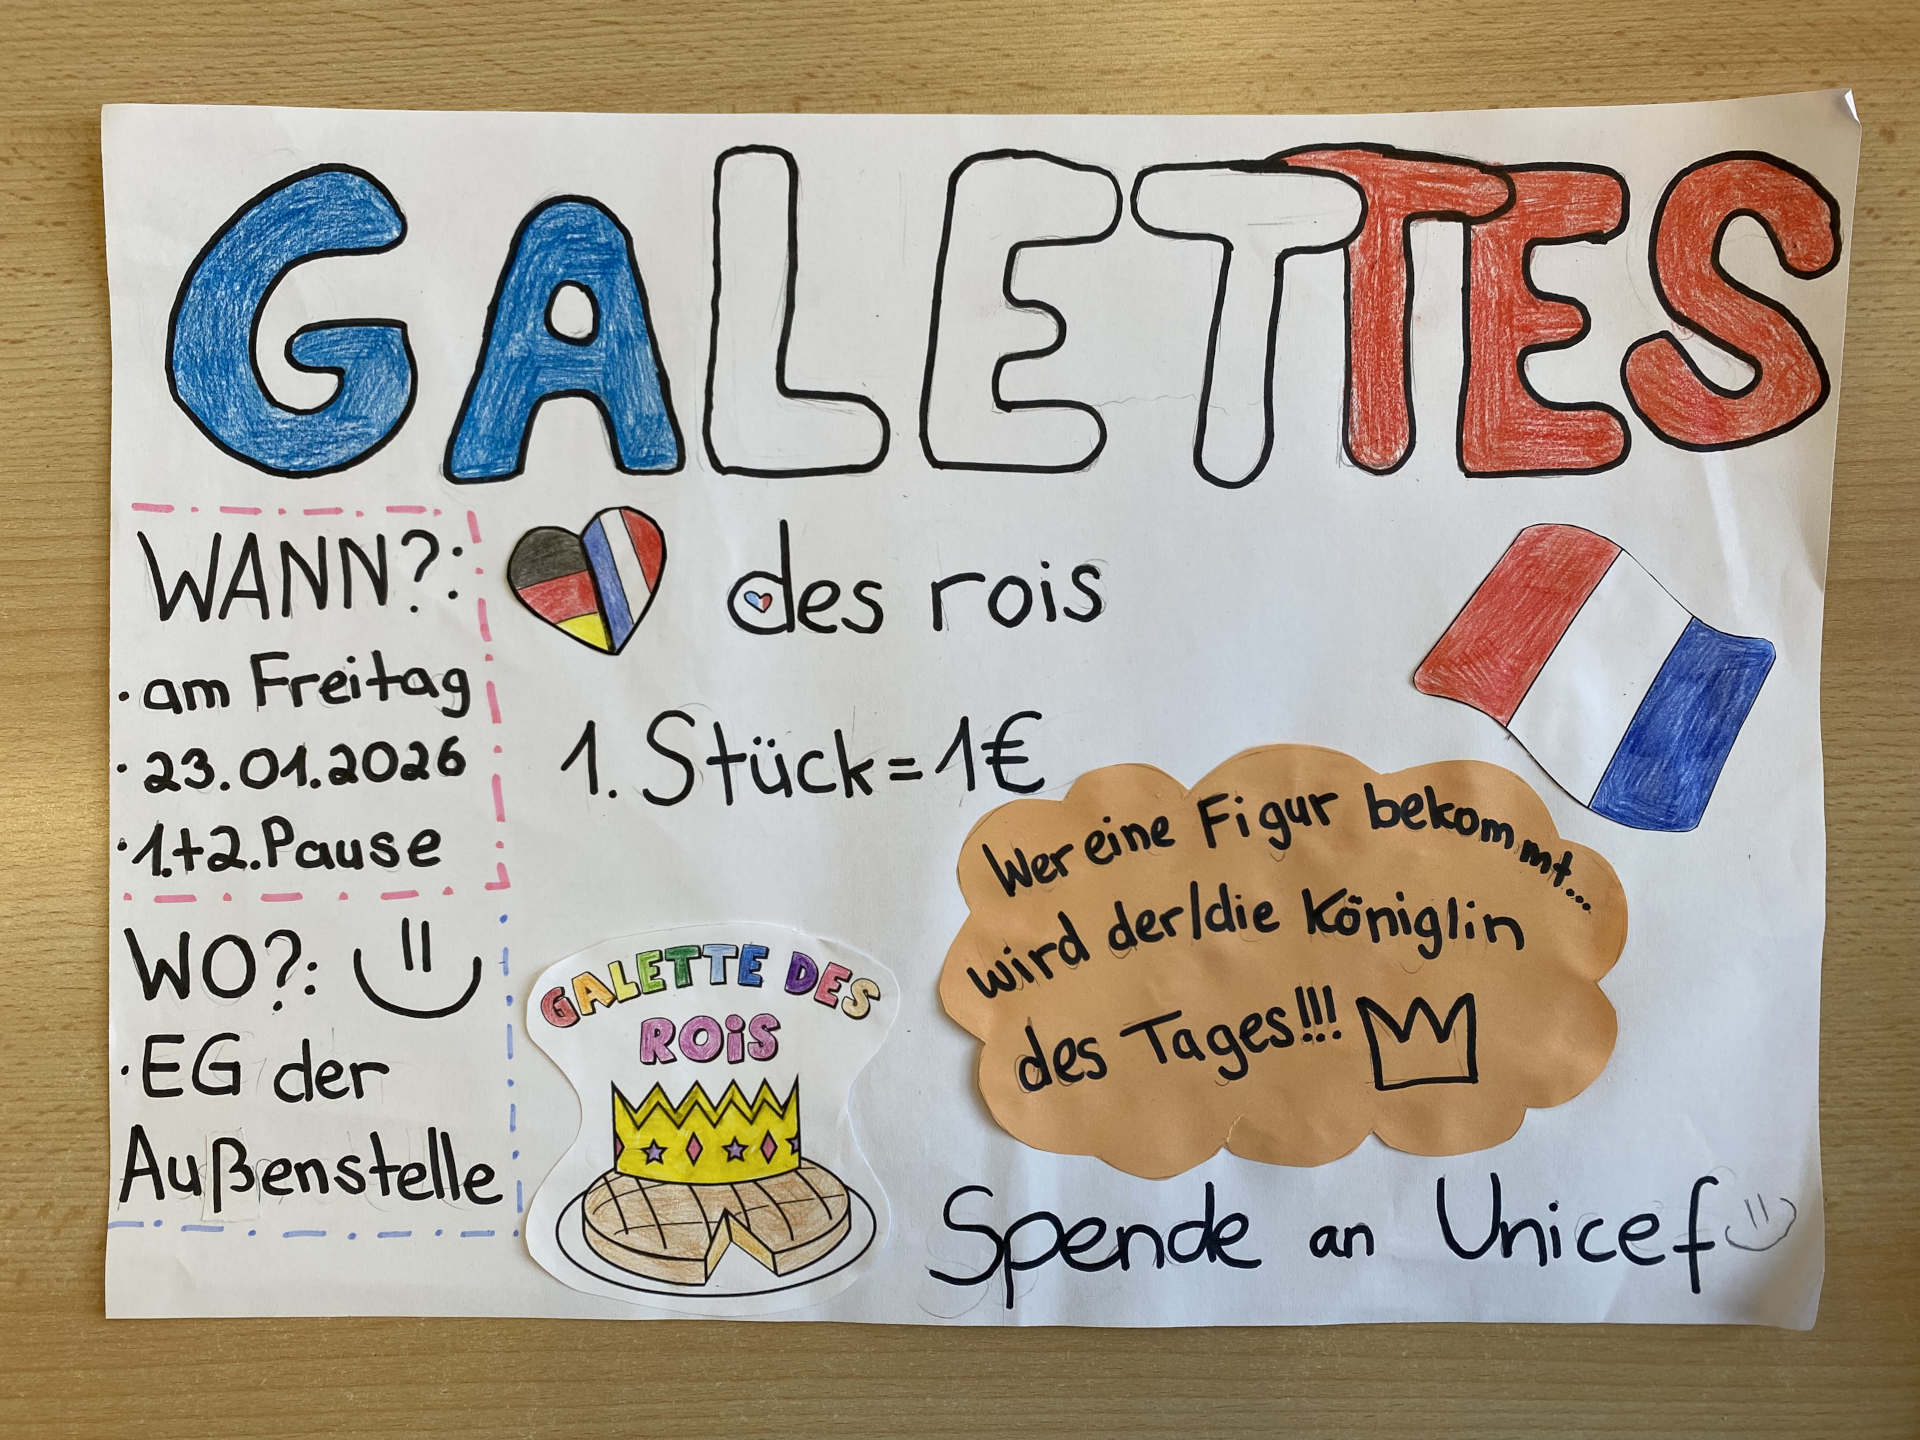 GALETTES
des rois
WANN?:
· am Freitag
· 23.01.2026
· 1.+2. Pause
WO?:
· EG der
Außenstelle
1. Stück = 1€
GALETTE DES
ROiS
Wer eine Figur bekommmt...
wird der/die König/in
des Tages!!!
Spende an Unicef